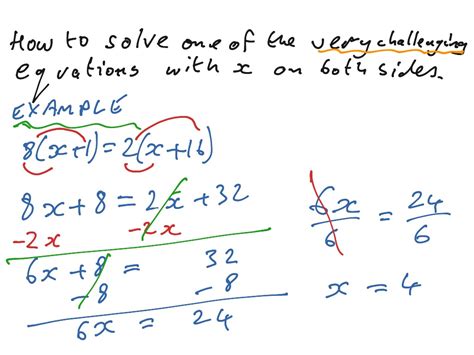 How to solve one of the very challenging
equations with x on both sides.
EXAMPLE
8(x+1)=2(x+16)
8x+8=2x+32
-2x -2x
6x+8= 32
-8 -8
6x = 24
6x/6 = 24/6
x = 4